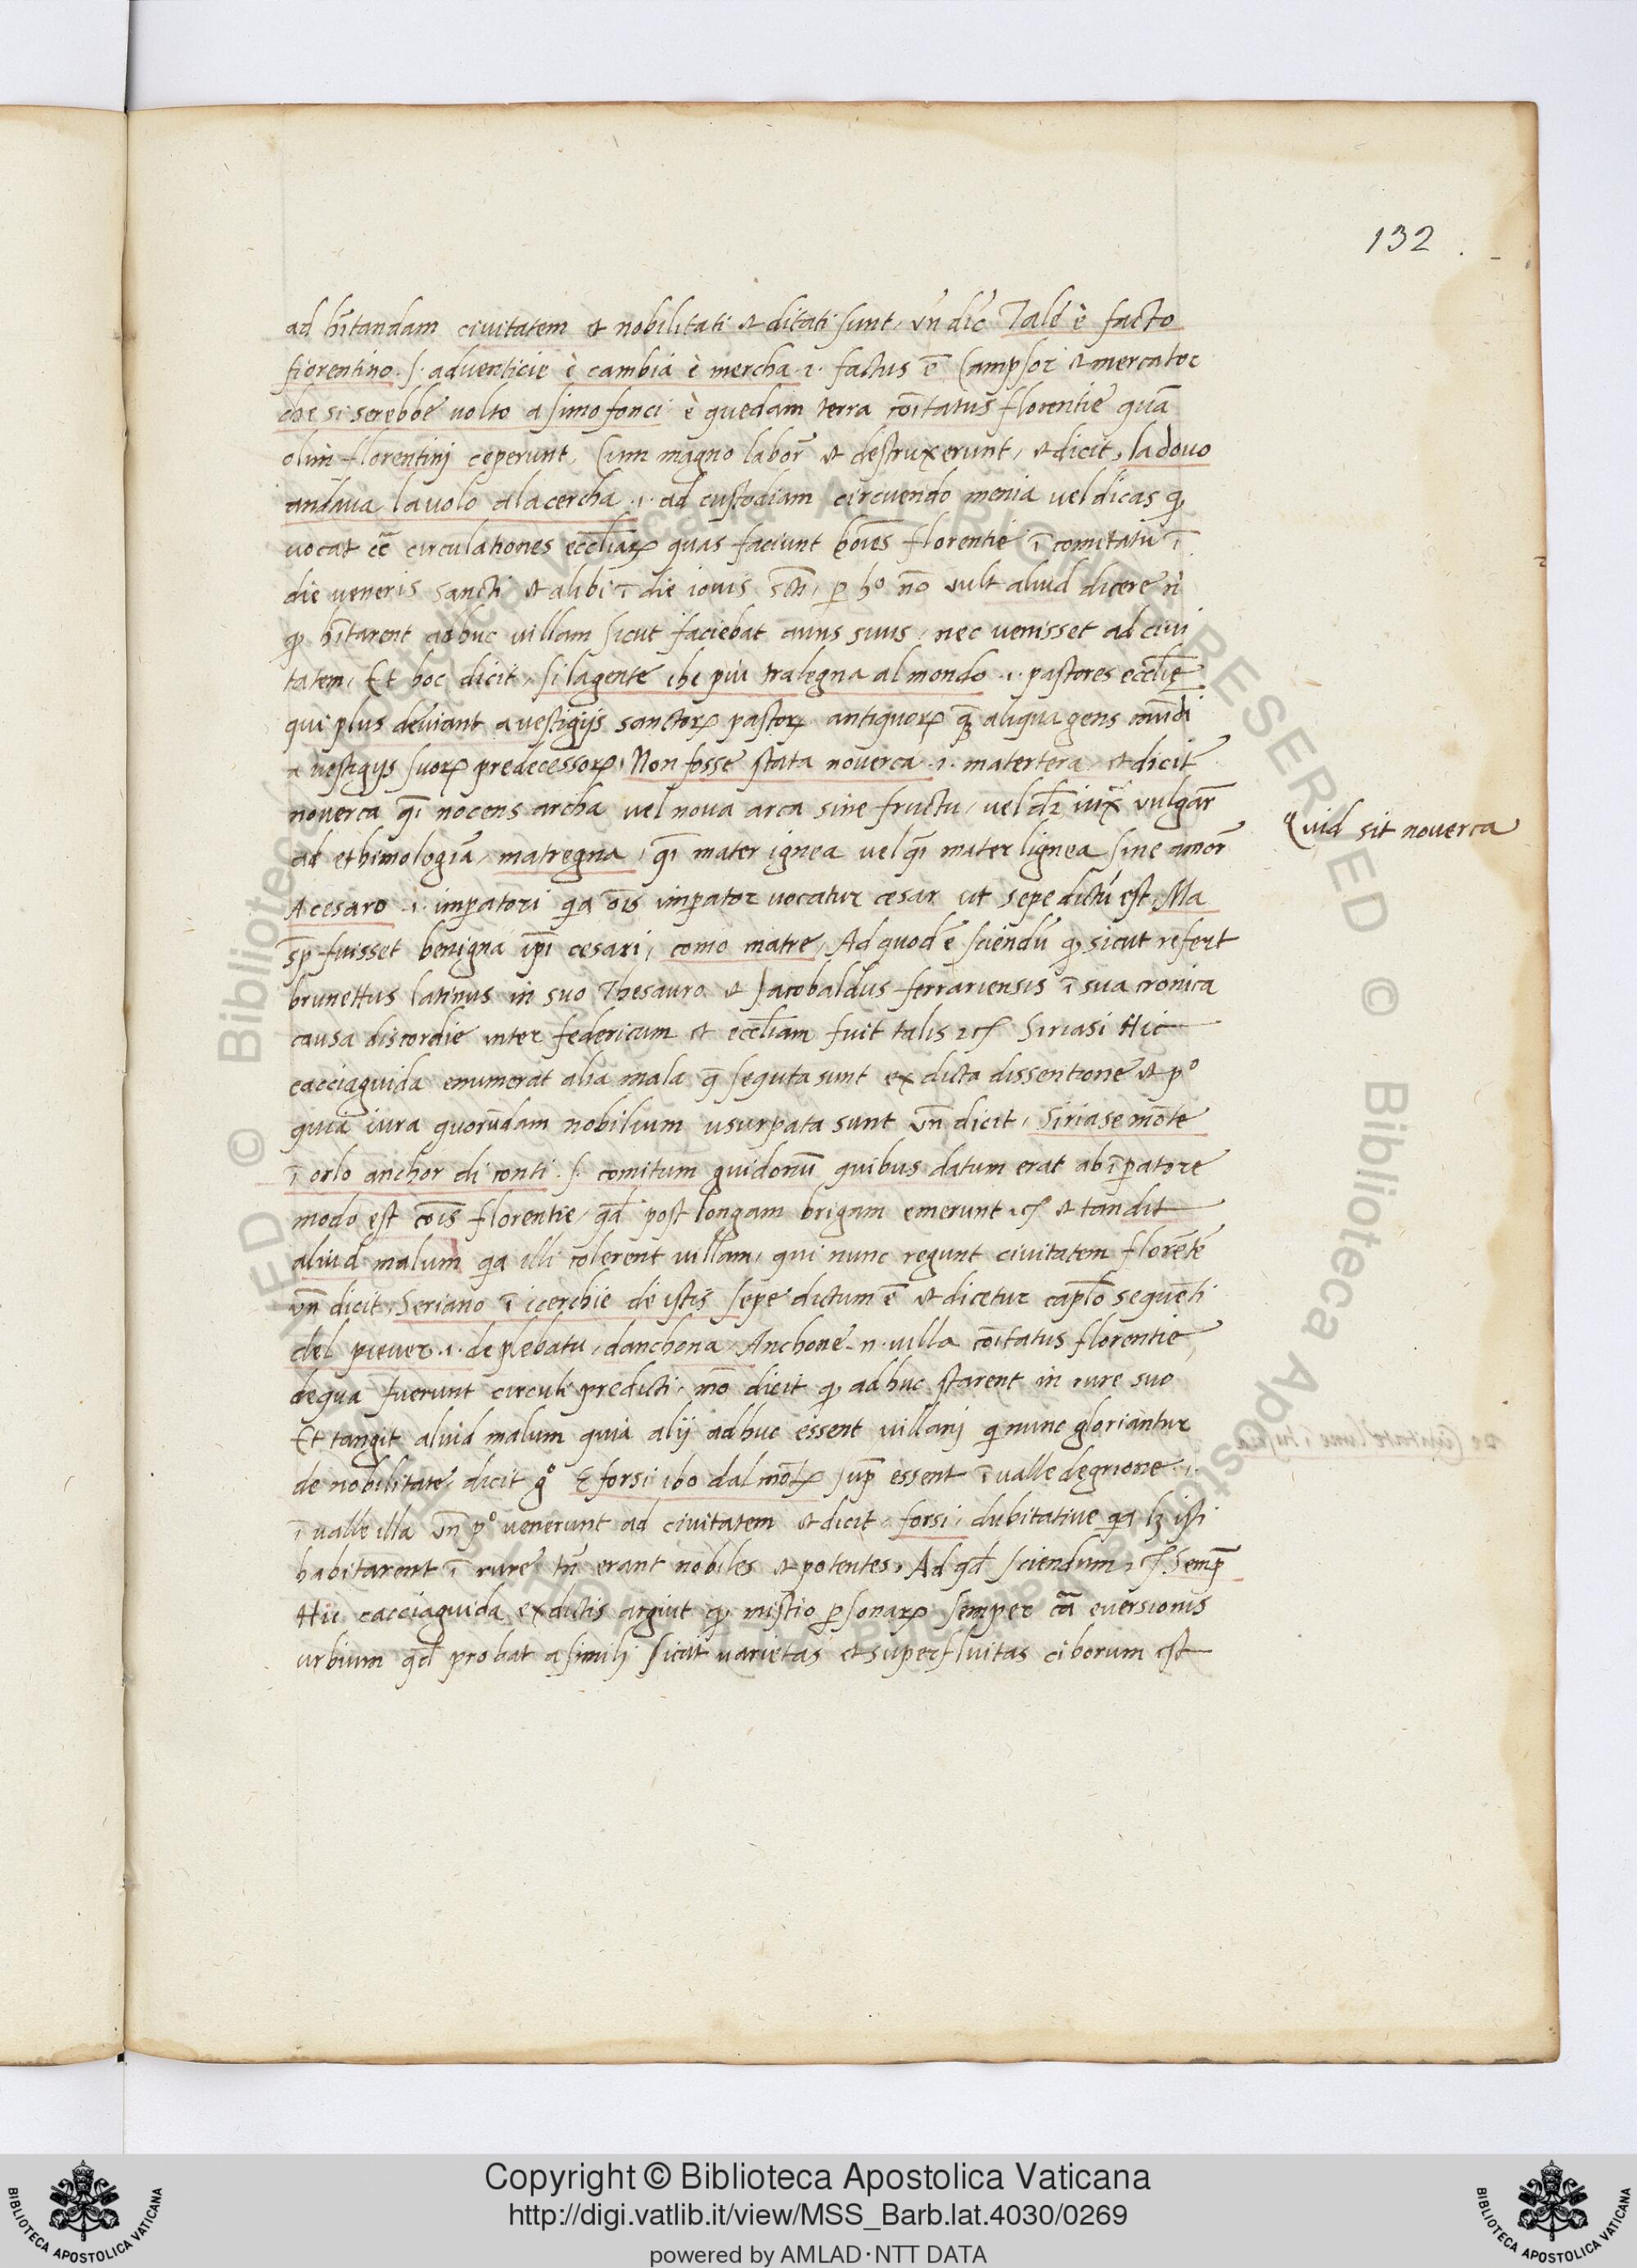 132
ad hītandam civitatem et nobilitati et ditati sunt, vn̄ dic̄ Tal è facto
fiorentino .s. adventicie è cambia è mercha .i. factus ē campsor et mercator
che si serebbe volto a simofonci è quedam terra coītatus florentie quā
olim florentinj ceperunt, cum magno labor̄ et destruxerunt, et dicit, la dovo
andava lavolo ala cercha .i. ad custodiam circuendo menia vel dicas ꝙ
vocat cē circulationes ecclīaꝝ quas faciunt hoīes florentie ī comitatu ī
die veneris sancti et alibi ī die iovis scti, ꝑ hº nō vult aliud dicere nˡ
ꝙ hītarent adhuc villam sicut faciebat avus suus, nec venisset ad civi
tatem, Et hoc dicit, si la gente che più tralegna al mondo .i. pastores ecclīe
qui plus deviant a vestigijs sanctoꝝ pastoꝝ antiquoꝝ ꝗ̃ aliqua gens mūdi
a vestigijs suoꝝ predecessoꝝ, Non fosse stata noverca .i. matertera, et dicit̄
noverca qı̄ nocens archa vel nova arca sine fructu, vel dꝛ iux̄ vulgar̄
ad ethimologiā, matregna, qı̄ mater ignea vel qı̄ mater lignea sine amor̄
A cesaro .i. imperatori qa oīs imperator vocatur cesar ut sepe dictū est, Ma
sp̄ fuisset benigna ip̄i cesari, como matre, Ad quod ē sciendū ꝙ sicut refert
brunettus latinus in suo Thesauro et Jacobaldus ferrariensis ī sua cronica
causa discordie inter federicum et ecclīam fuit talis ⁊cꝭ Siriasi Hic
cacciaguida enumerat alia mala q̄ sequta sunt ex dicta dissentione et pº
quia iura quorūdam nobilium usurpata sunt vn̄ dicit, Siriase mōte
ī orlo anchor di conti .s. comitum guidonū quibus datum erat ab īperatore
modo est cōis florentie, qd̄ post longam brigam emerunt ⁊cꝭ et tandit
aliud malum qa illi colerent villam, qui nunc regunt civitatem florētē
vn̄ dicit, Seriano ī icerchie de istis sepe dictum ē et dicetur caplō sequēti
del piever .i. de plebatu, danchona, Anchone .n. villa coītatus florentie,
de qua fuerunt circuli predicti, mō dicit ꝙ adhuc starent in rure suo
Et tangit aliud malum quia alij adhuc essent villanj q nunc gloriantur
de nobilitate, dicit gº E forsi ibo dal mōtꝝ sup̄ essent ī valle degrione .i.
ī valle illa vn̄ pº venerunt ad civitatem et dicit, forsi, dubitative qa lꝫ isti
habitarent ī rure, tn̄ erant nobiles et potentes, Ad qd̄ sciendum ⁊cꝭ. Semp̄
Hic cacciaguida ex dictis arguit ꝙ mistio ꝑsonaꝝ semper cā eversionis
urbium qd̄ probat a similj sicut varietas et superfluitas ciborum est
Quid sit noverca
Copyright © Biblioteca Apostolica Vaticana
http://digi.vatlib.it/view/MSS_Barb.lat.4030/0269
powered by AMLAD·NTT DATA
BIBLIOTECA APOSTOLICA VATICANA
BIBLIOTECA APOSTOLICA VATICANA